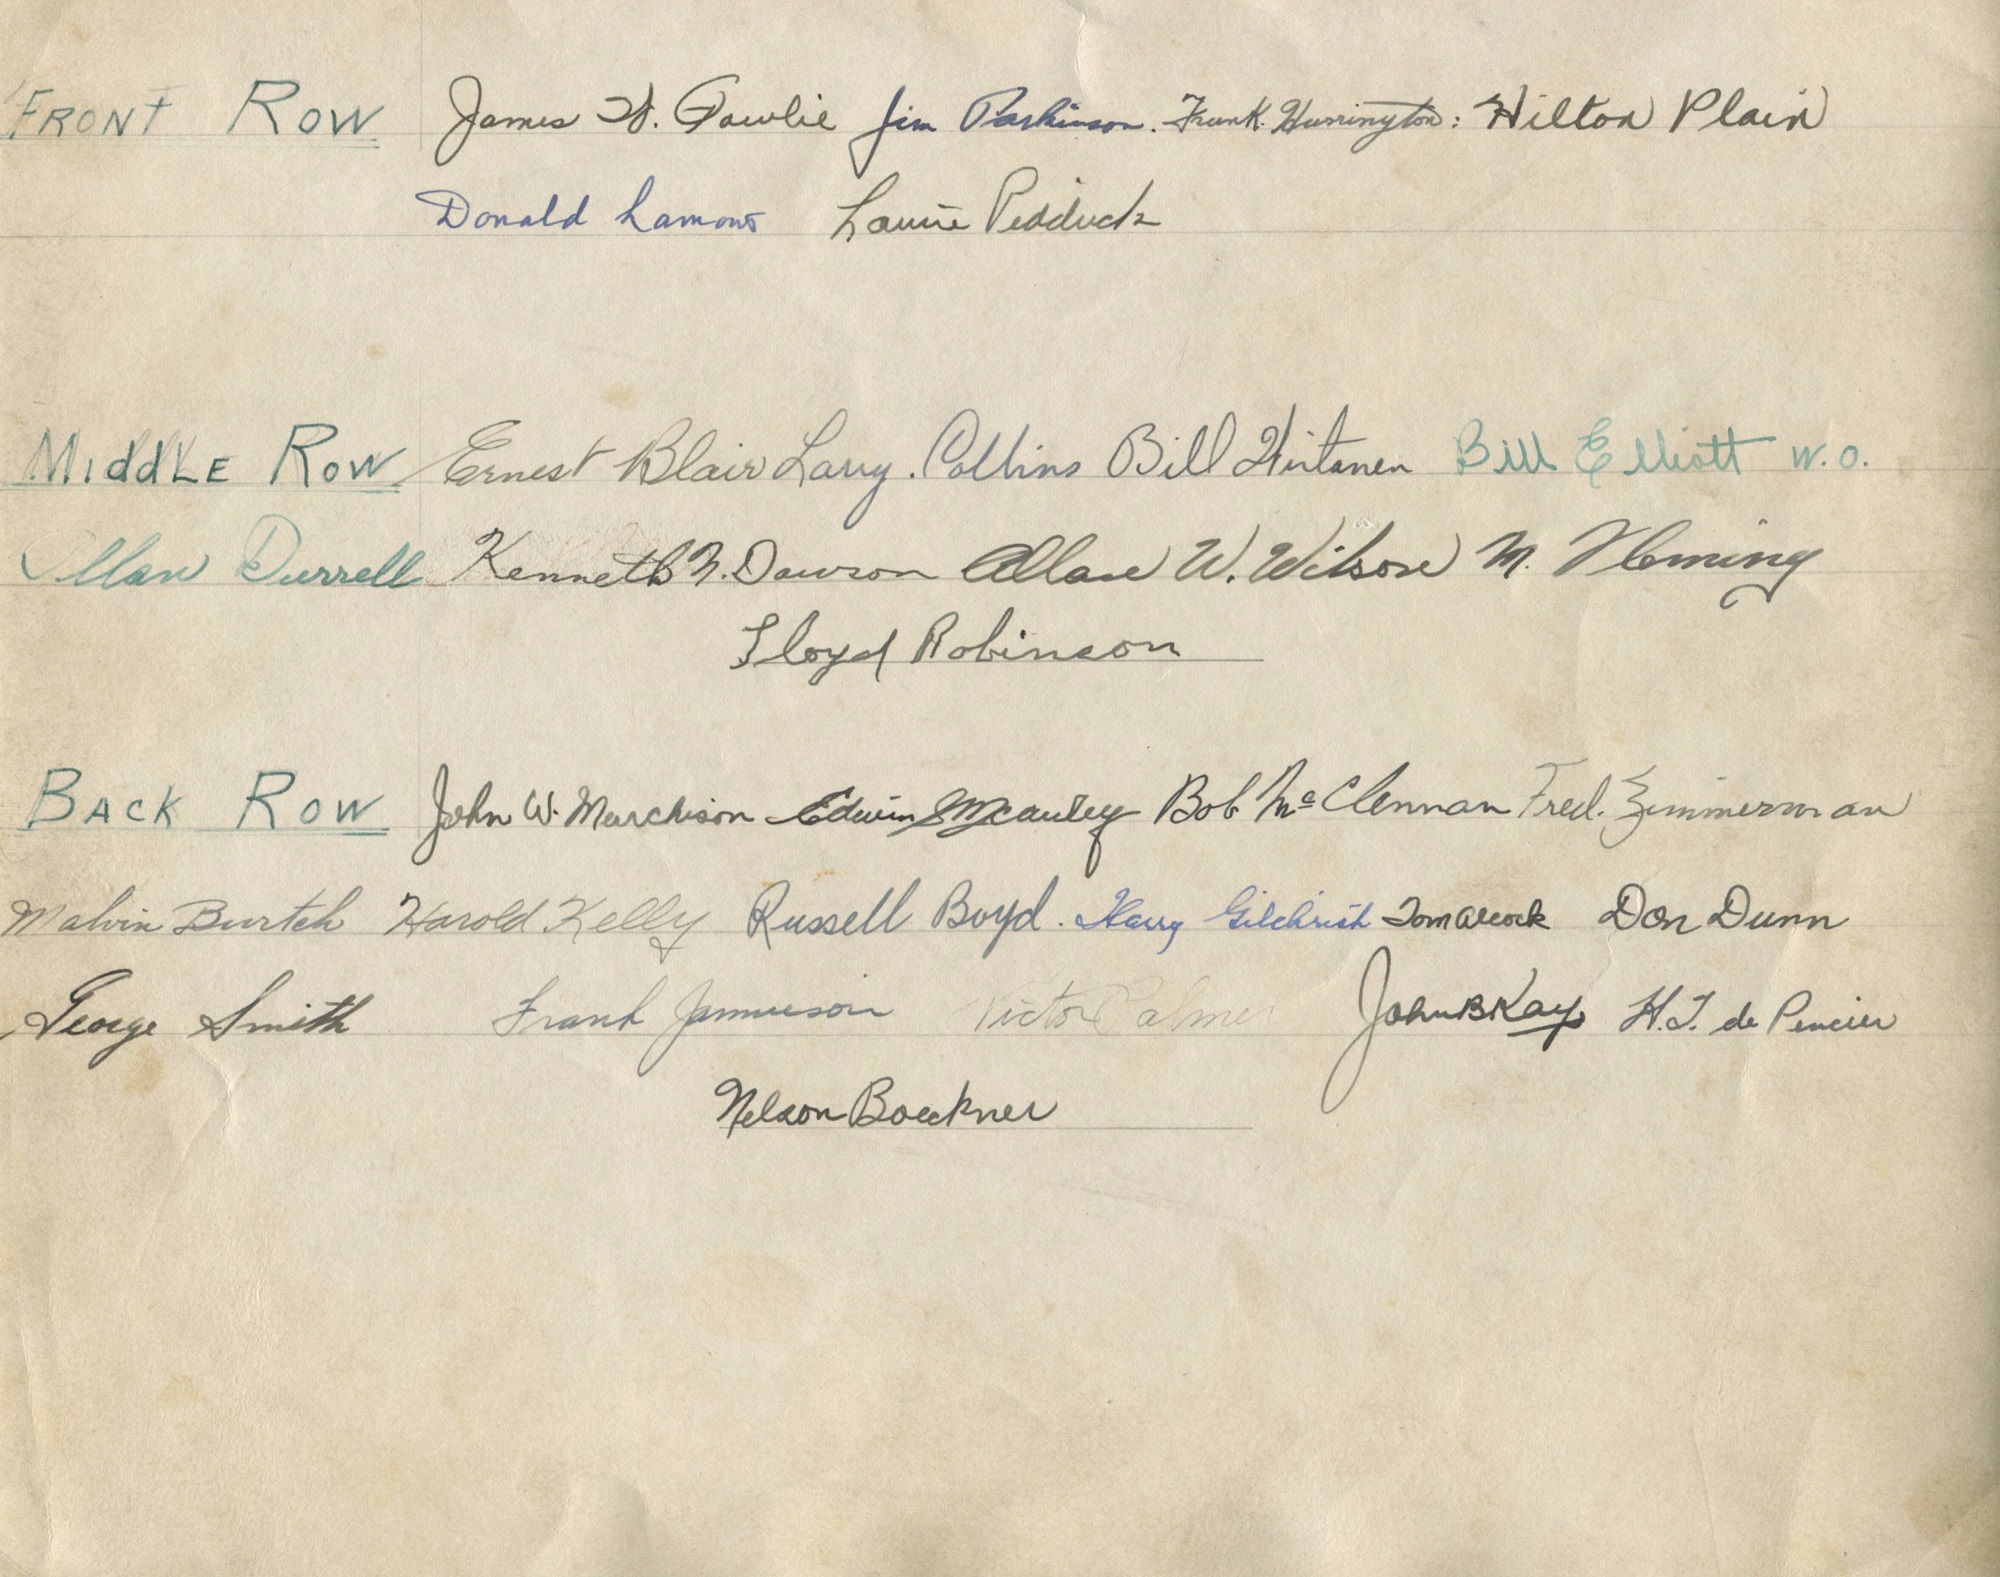 FRONT ROW James W. Pawlie Jim Parkinson. Frank Harrington: Hilton Plain
Donald Lamont Laurie Pedduck
MIDDLE ROW Ernest Blair Larry. Collins Bill Hirtanen Bill Elliott W.O.
Allan Durrell Kenneth N. Dawson Allan W. Wilson M. Fleming
Lloyd Robinson
BACK ROW John W. Murchison Edwin McCauley Bob McClennan Fred. Zimmerman
Malvin Burtch Harold Kelly Russell Boyd. Harry Gilchrist Tom Alcock Don Dunn
George Smith Frank Jamieson Victor Calmer John B Kay H.T. de Pencier
Nelson Boeckner